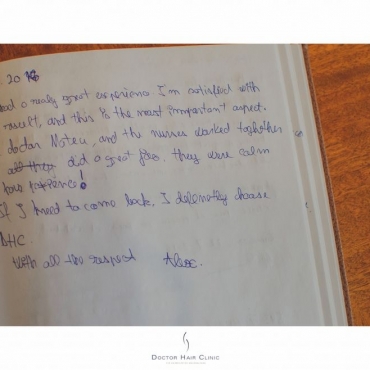 20 18
had a realy great experience I'm satisfied with
result, and this is the most important aspect.
doctor Noteu, and the nurses worked toghether
did a great job. they were calm
!
If I need to come back, I defenetly choose
DHC.
With all the respect Alex.
DOCTOR HAIR CLINIC